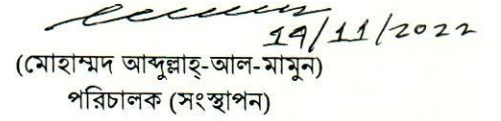 14/11/2022
(মোহাম্মদ আব্দুল্লাহ্-আল-মামুন)
পরিচালক (সংস্থাপন)